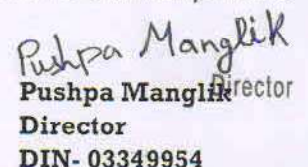 Pushpa Manglik
Pushpa Manglik Director
Director
DIN- 03349954